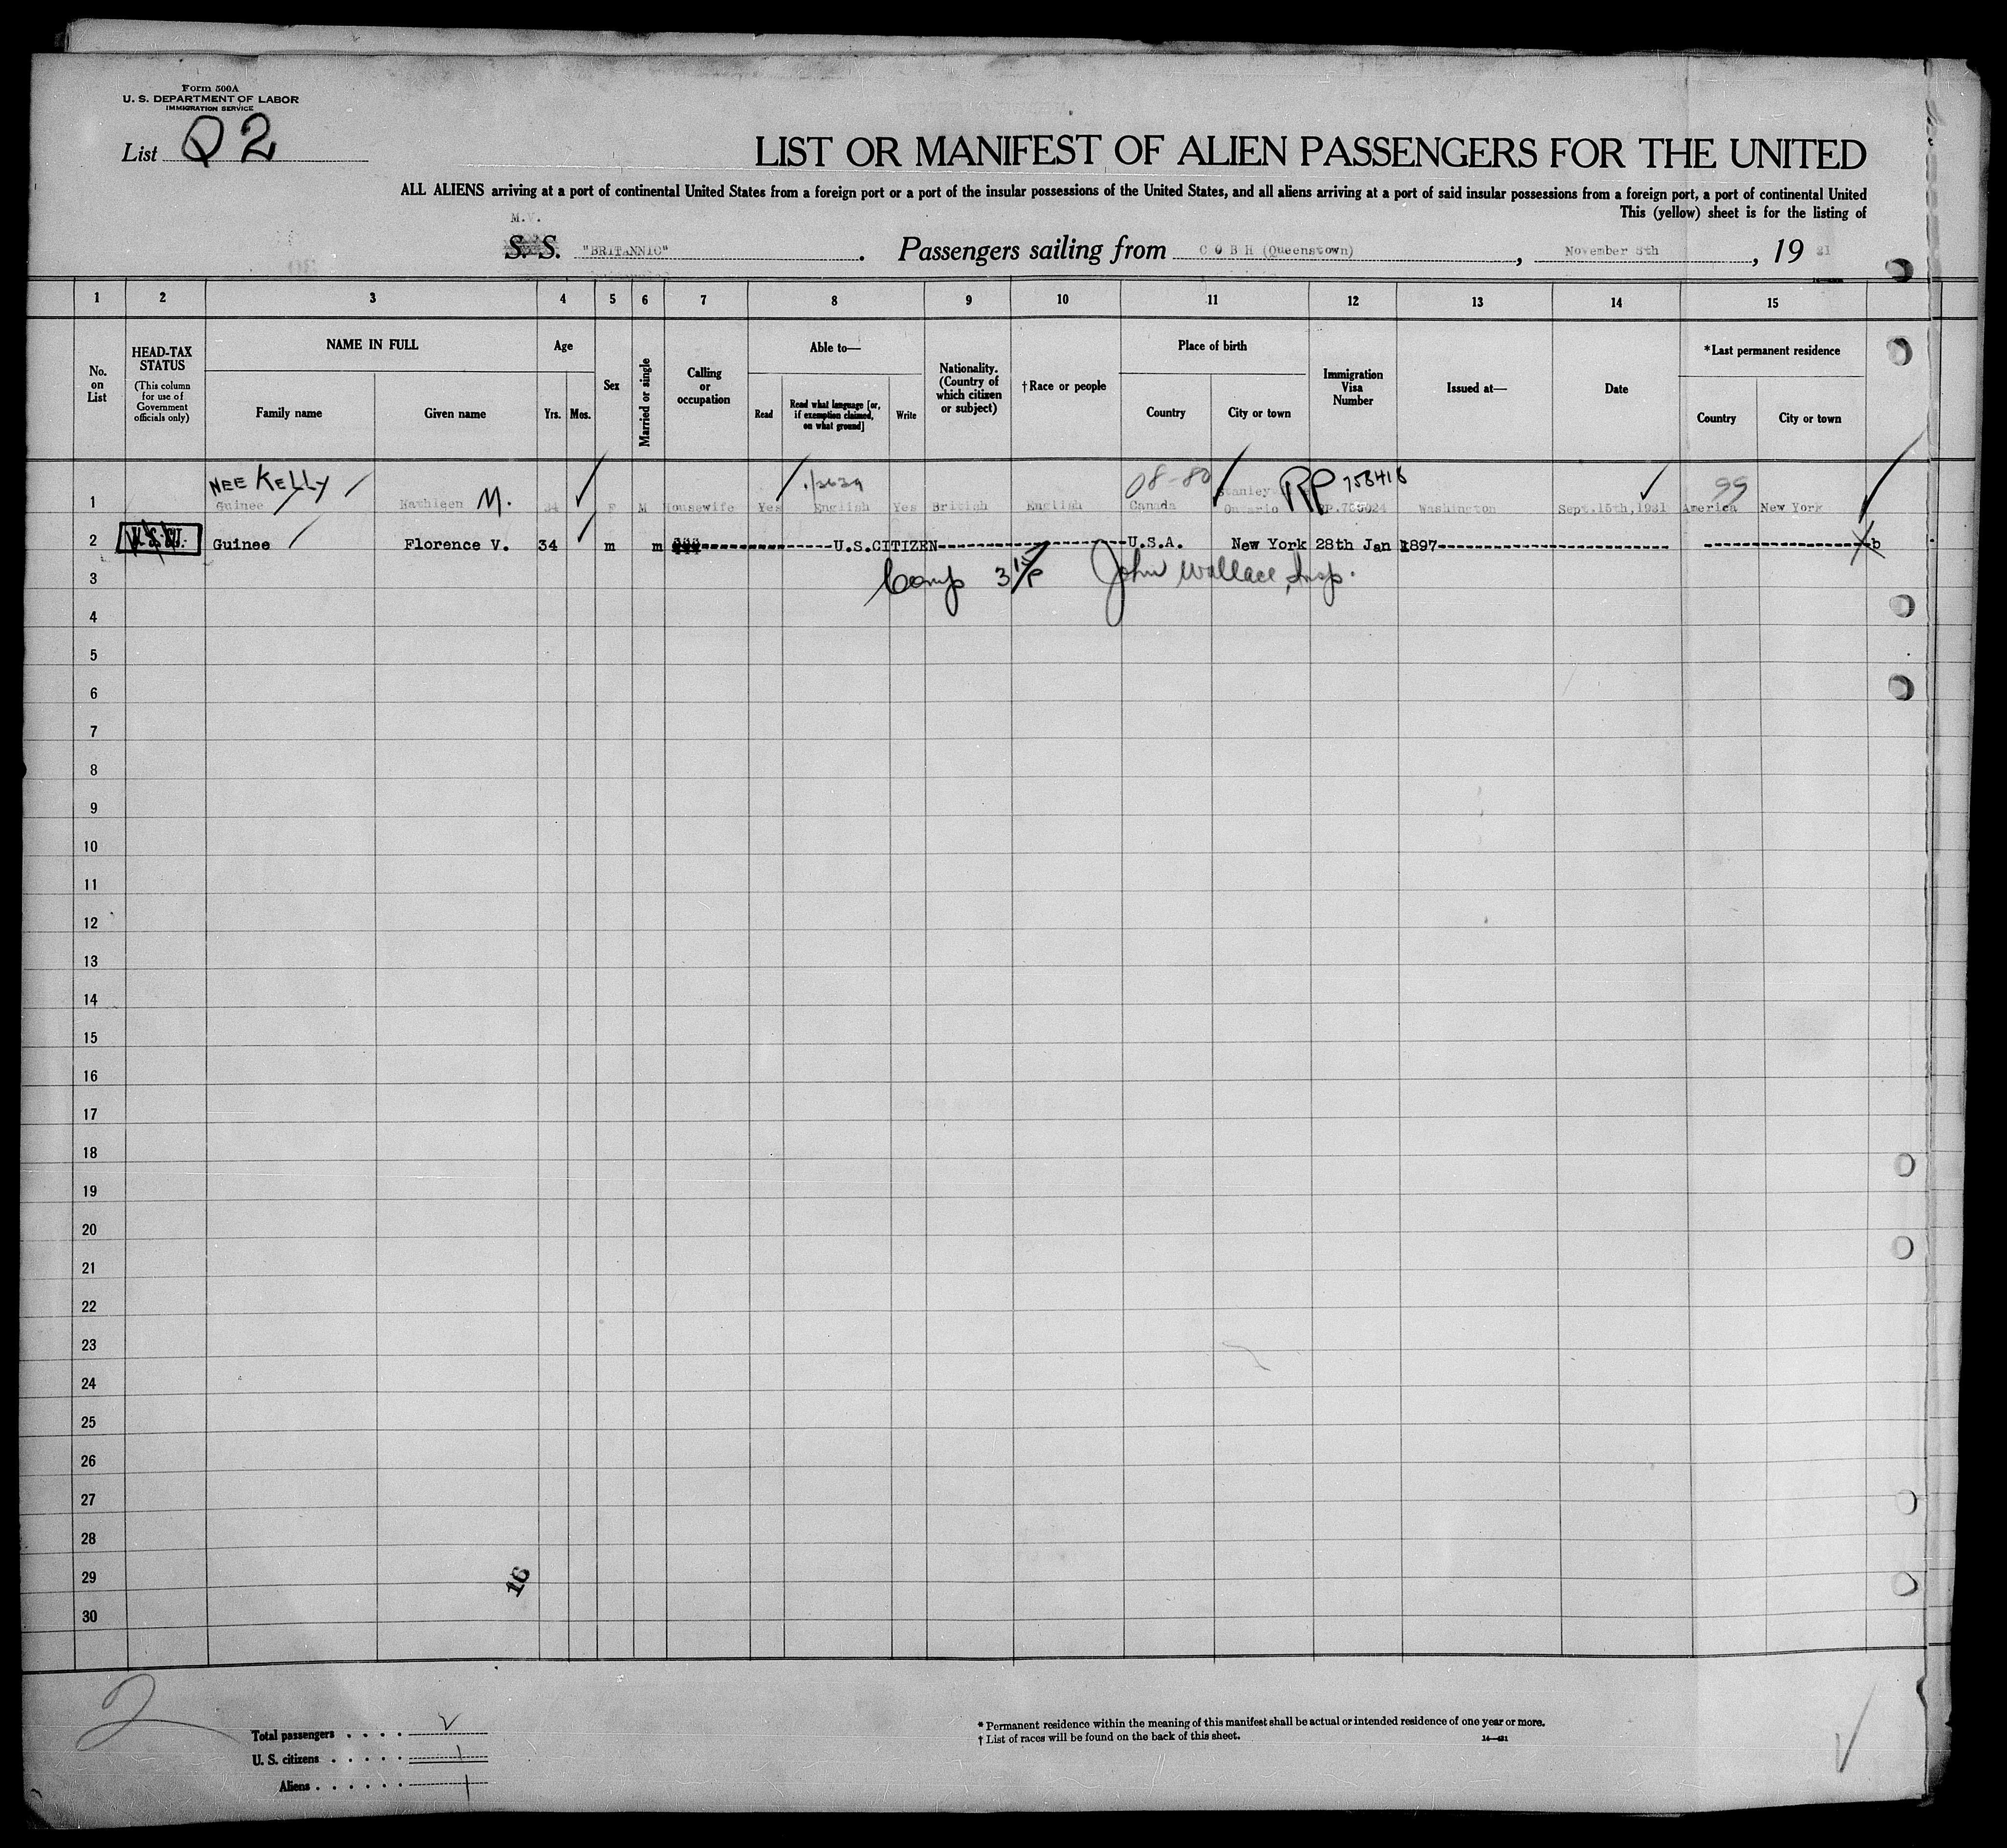 Form 500A
U. S. DEPARTMENT OF LABOR
IMMIGRATION SERVICE
List Q2
LIST OR MANIFEST OF ALIEN PASSENGERS FOR THE UNITED
ALL ALIENS arriving at a port of continental United States from a foreign port or a port of the insular possessions of the United States, and all aliens arriving at a port of said insular possessions from a foreign port, a port of continental United
This (yellow) sheet is for the listing of
M.V.
S. S. "BRITANNIC". Passengers sailing from COBH (Queenstown), November 8th, 1931
1 2 3 4 5 6 7 8 9 10 11 12 13 14 15
No. on List
HEAD-TAX STATUS
(This column for use of Government officials only)
NAME IN FULL
Family name
Given name
Age
Yrs.
Mos.
Sex
Married or single
Calling or occupation
Able to—
Read
Read what language [or, if exemption claimed, on what ground]
Write
Nationality. (Country of which citizen or subject)
†Race or people
Place of birth
Country
City or town
Immigration Visa Number
Issued at—
Date
*Last permanent residence
Country
City or town
NEE KELLY 08-80 Stanley RP 758416 99
1 Guinee Kathleen M. 34 F M Housewife Yes English Yes British English Canada Ontario Washington Sept.15th,1931 America New York
2 Guinee Florence V. 34 m m U.S.CITIZEN U.S.A. New York 28th Jan 1897 b
3 John Wallace, Insp.
4
5
6
7
8
9
10
11
12
13
14
15
16
17
18
19
20
21
22
23
24
25
26
27
28
29
16
30
2
Total passengers . . . . 2
U. S. citizens . . . . . 1
Aliens . . . . . . 1
* Permanent residence within the meaning of this manifest shall be actual or intended residence of one year or more.
† List of races will be found on the back of this sheet.